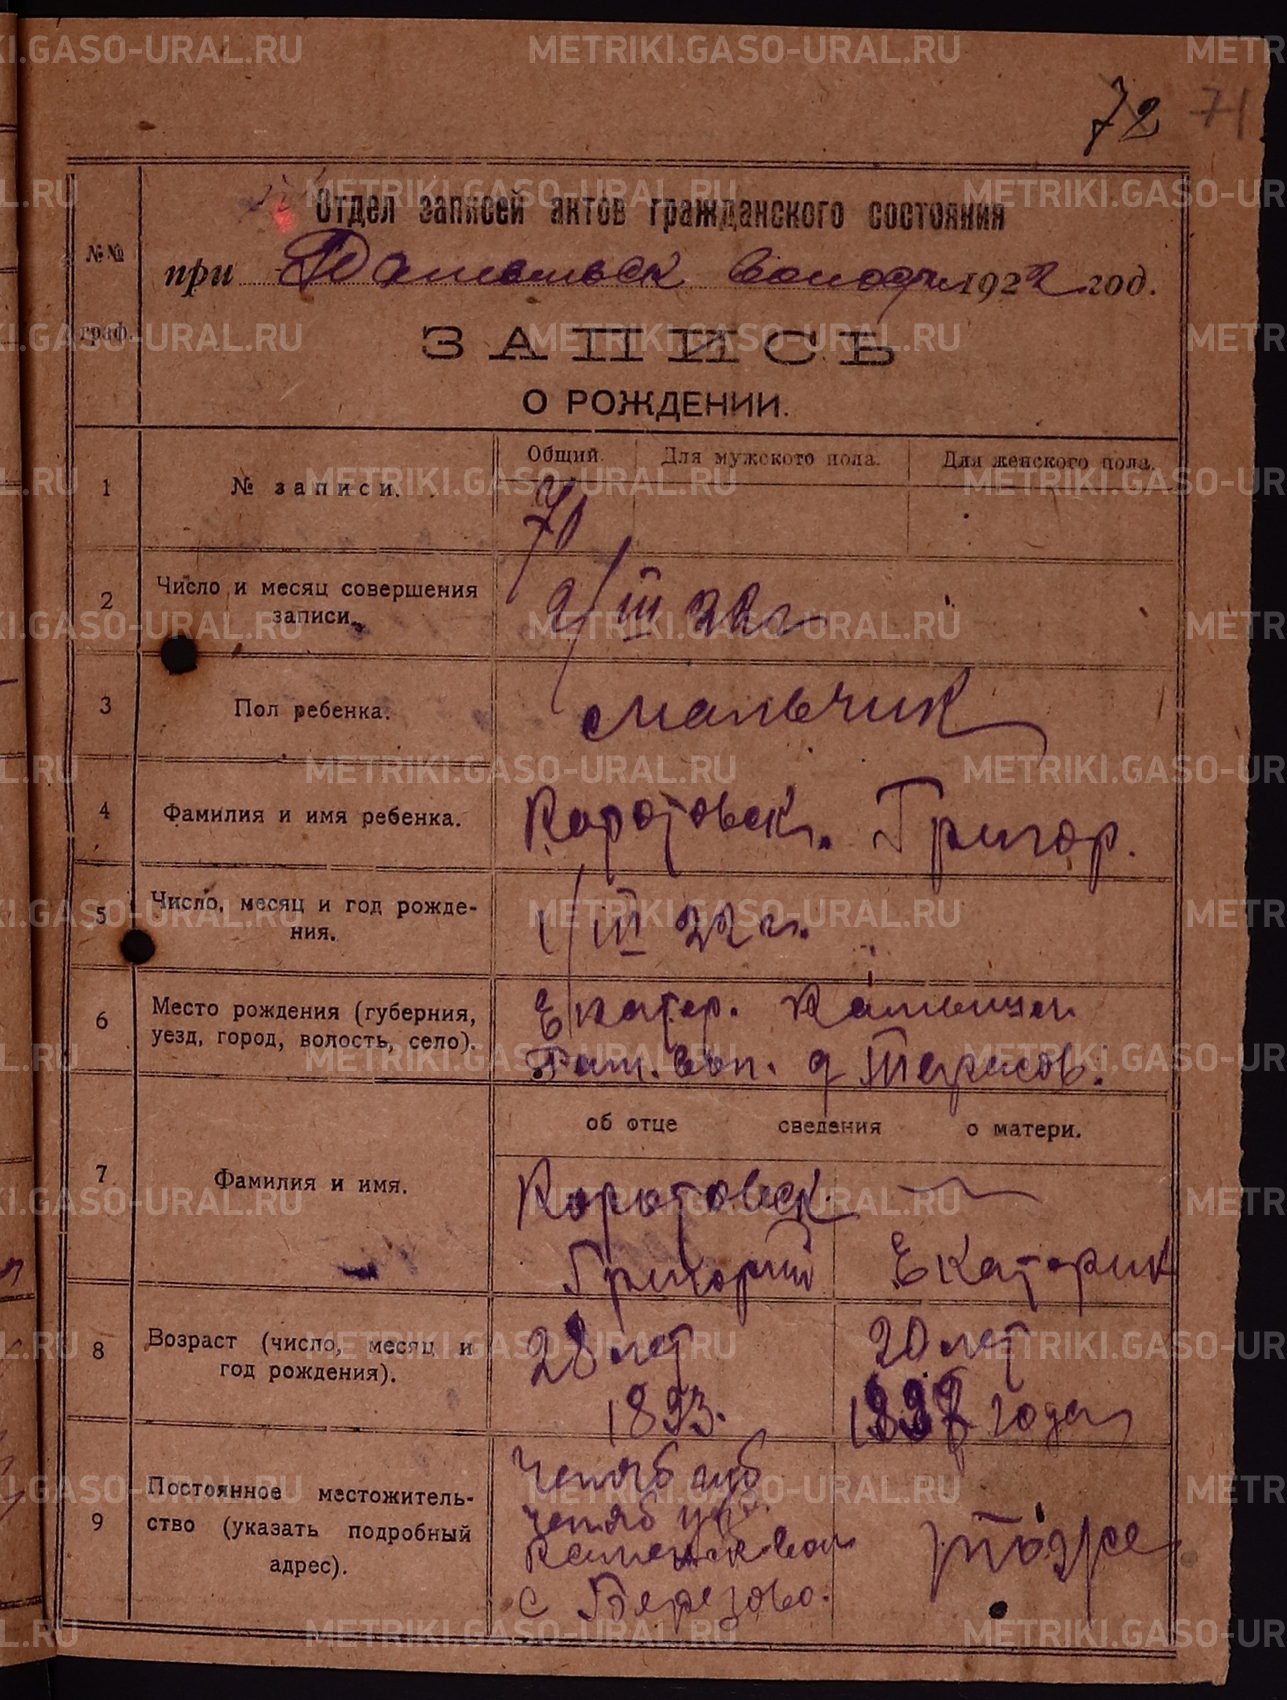 72 71
Отдел записей актов гражданского состояния
№№ граф.
при 1922 год.
ЗАПИСЬ
О РОЖДЕНИИ.
Общий. Для мужского пола. Для женского пола.
1 № записи. 71
2 Число и месяц совершения
записи. 2/III 22 г
3 Пол ребенка. мальчик
4 Фамилия и имя ребенка. Коротовск. Григор.
5 Число, месяц и год рожде-
ния. 1/III 22 г.
6 Место рождения (губерния, Екатер.
уезд, город, волость, село). вол. д
об отце сведения о матери.
7 Фамилия и имя. Коротовск.
Григорий Екатерин
8 Возраст (число, месяц и 28 лет 20 лет
год рождения). 1893. года
9 Постоянное местожитель-
ство (указать подробный
адрес).
Челяб губ
Челяб у
вол
с Березово.
тоже
METRIKI.GASO-URAL.RU